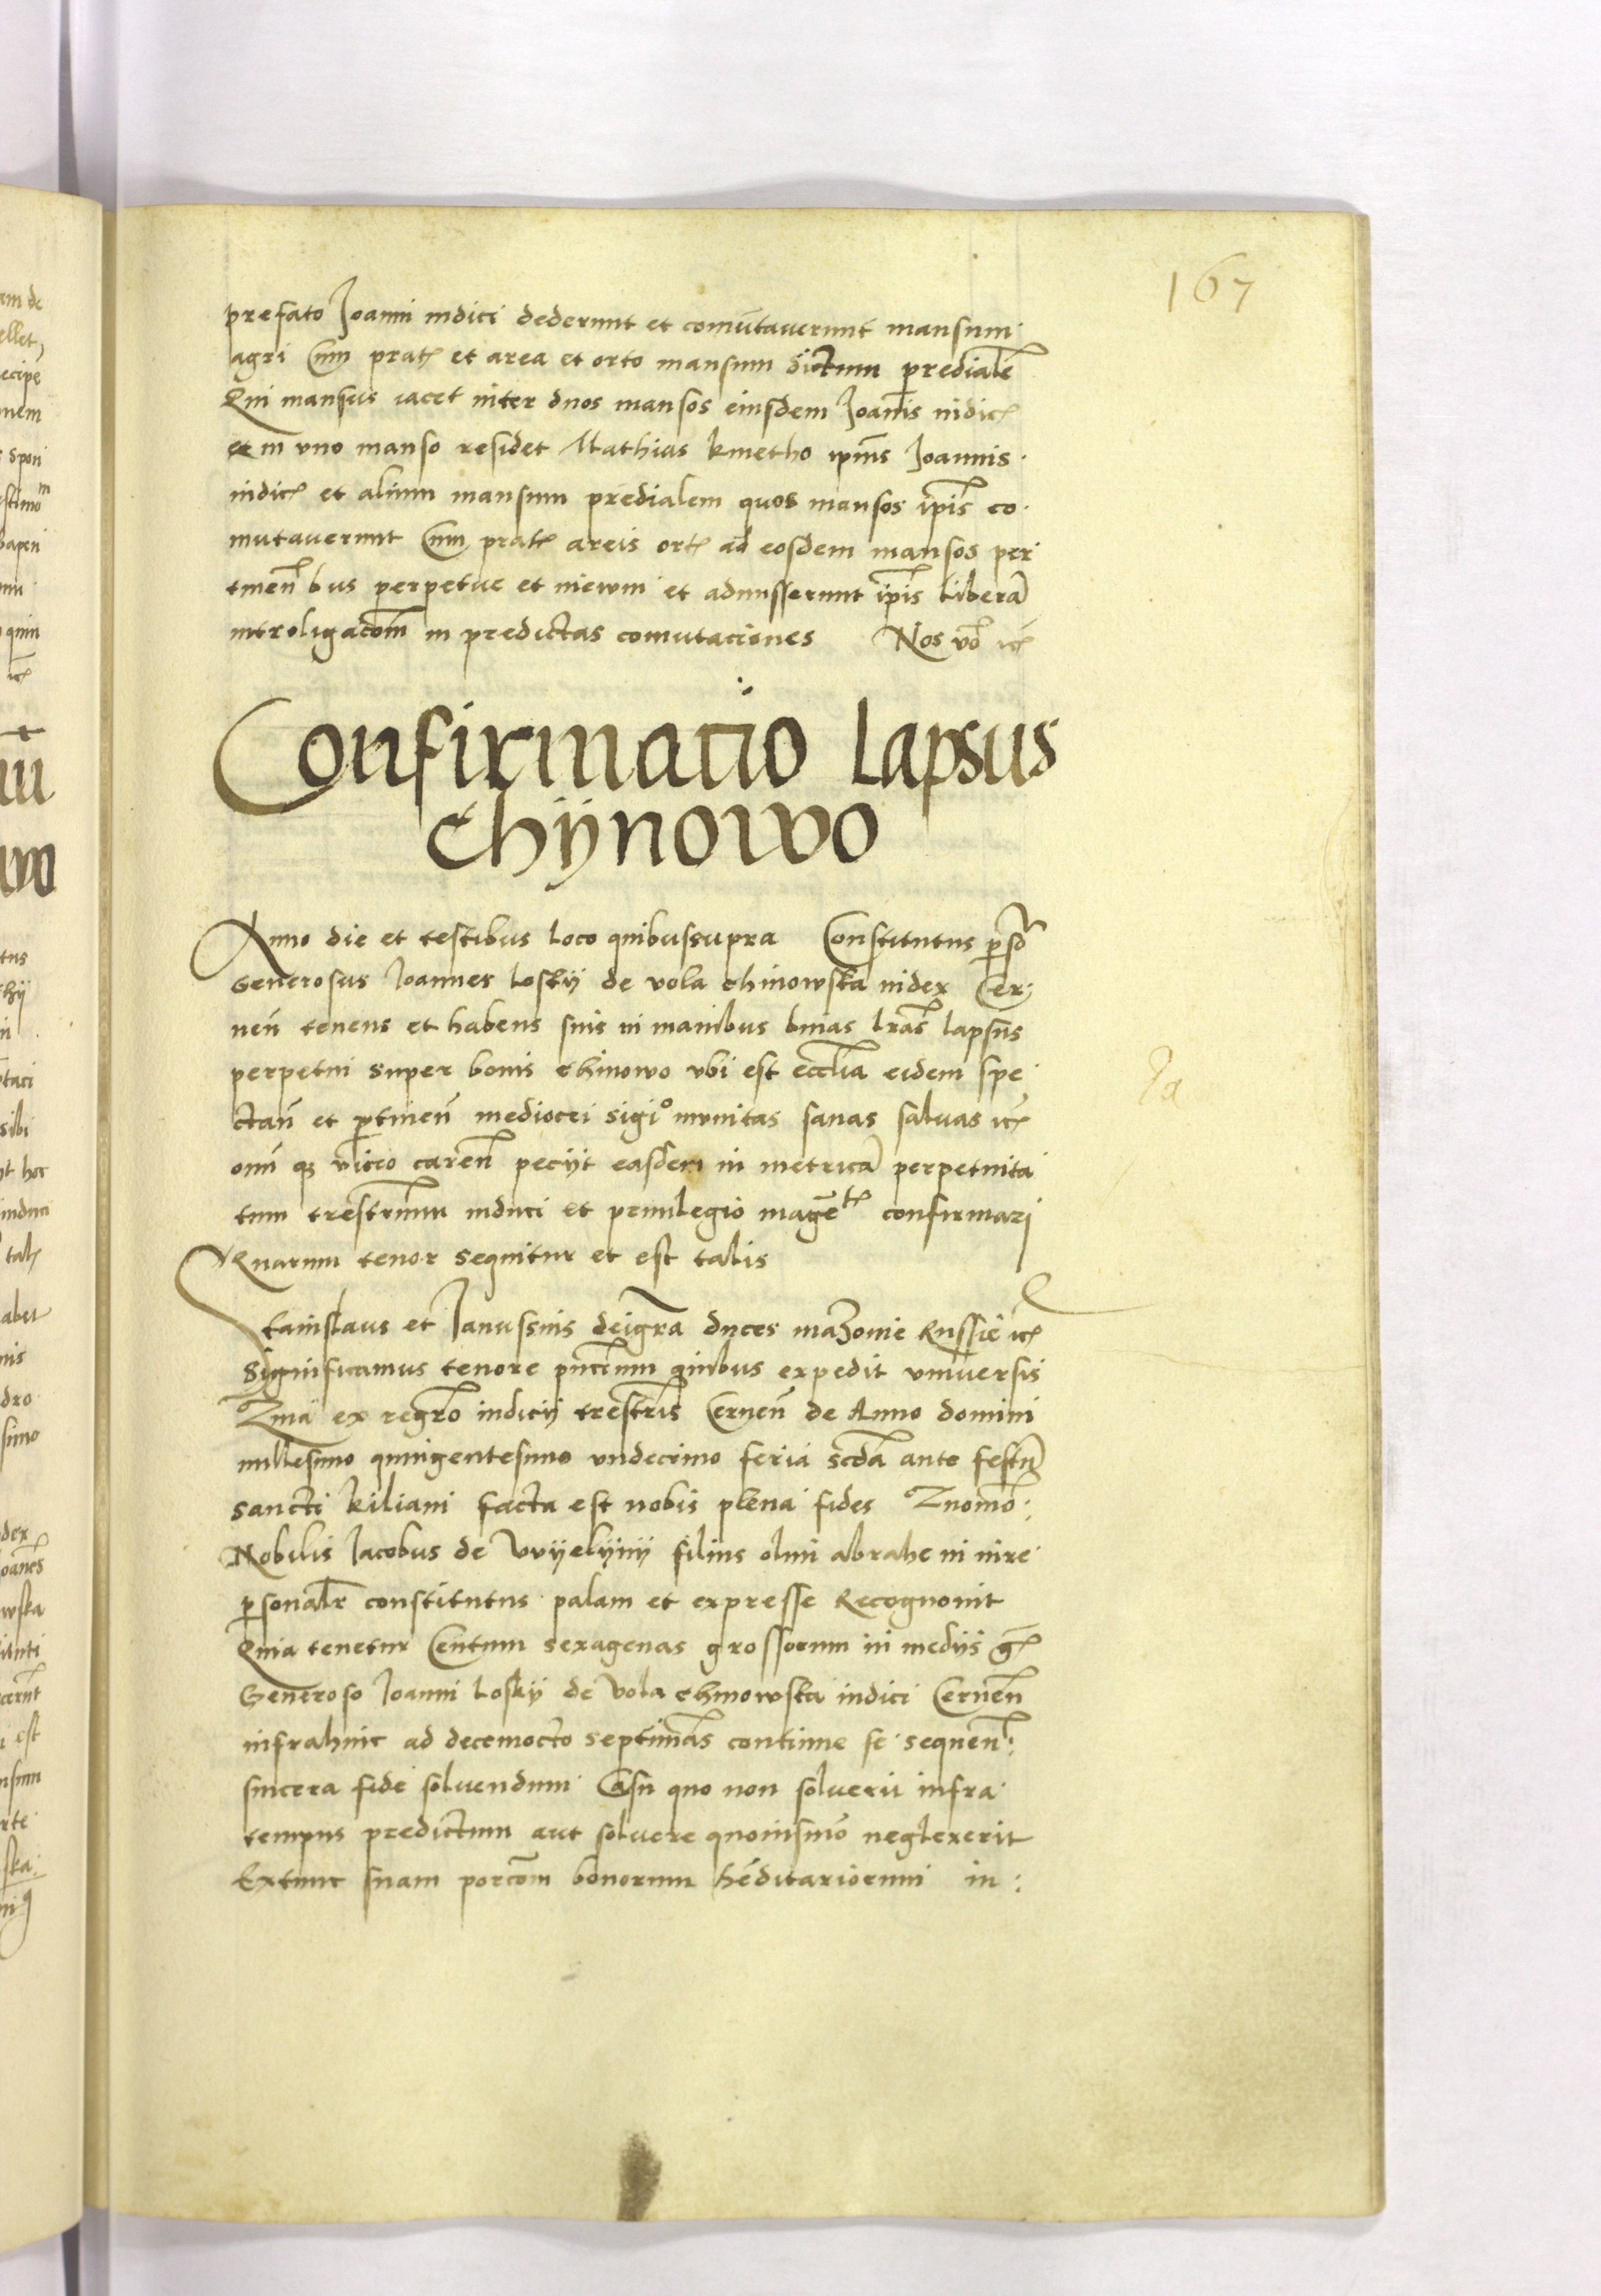 167
prefato Joanni iudici dederunt et comutauerunt mansum
agri Cum prat et area et orto mansum dictum predialē
Qui mansus iacet inter duos mansos eiusdem Joanīs iudic
et in vno manso residet Mathias kmetho ipiūs Joannis
iudic et alium mansum predialem quos mansos ipīs co
mutauerunt Cum prat areis ort ad eosdem mansos per
tinen̄ bus perpetue et in ewm et admisserunt ipīs liberā
intro ligacōm in predictas comutaciones Nos vō
Confirmatio Lapsus
Chÿnowo
Anno die et testibus loco quibussupra Constitutus
Generosus Joannes Loskÿ de vola chinowska iudex Cer
nen̄ tenens et habens suis in manibus binas lrās lapsus
perpetui super bonis chinowo vbi est ecclīa eidem spe
ctan̄ et ptinen̄ mediocri sigiº munitas sanas saluas
omī qʒ vitio caren̄ peciit easdem in metricā perpetuita
tum trestrium induci et priuilegio confirmari
Quarum tenor sequitur et est talis
Ja
Stanislaus et Janussius deigrā duces maʒouie Russie
Significamus tenore pn̄cium quibus expedit vniuersis
Quia ex regrō iudicij trestris Cernen̄ de Anno domini
millesimo quingentesimo vndecimo feria scda ante festū
sancti kiliani facta est nobis plena fides Quomō
Nobilis Jacobus de Wyelÿnÿ filius olim abrahe in iure
psonalr constitutus palam et expresse Recognouit
Quia tenetur Centum sexagenas grossorum in medijs
Generoso Joanni Loskÿ de Vola chinowska iudici Cernen̄
infrahinc ad decemocto septimās continue se sequen̄
sincera fide soluendum Casu quo non soluerit infra
tempus predictum aut soluere quouismō neglexerit
Extunc suam porcōm bonorum hēditariorum in